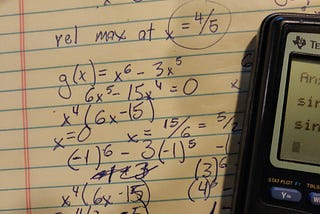 rel max at x = 4/5
g(x) = x⁶ - 3x⁵
6x⁵ - 15x⁴ = 0
x⁴(6x-15)
x=0 x = 15/6 = 5/2
(-1)⁶ - 3(-1)⁵ -
(3)⁶
x⁴(6x-15) (4)⁵
Te
An
sin
sin
STAT PLOT F1 TBLSET
Y=